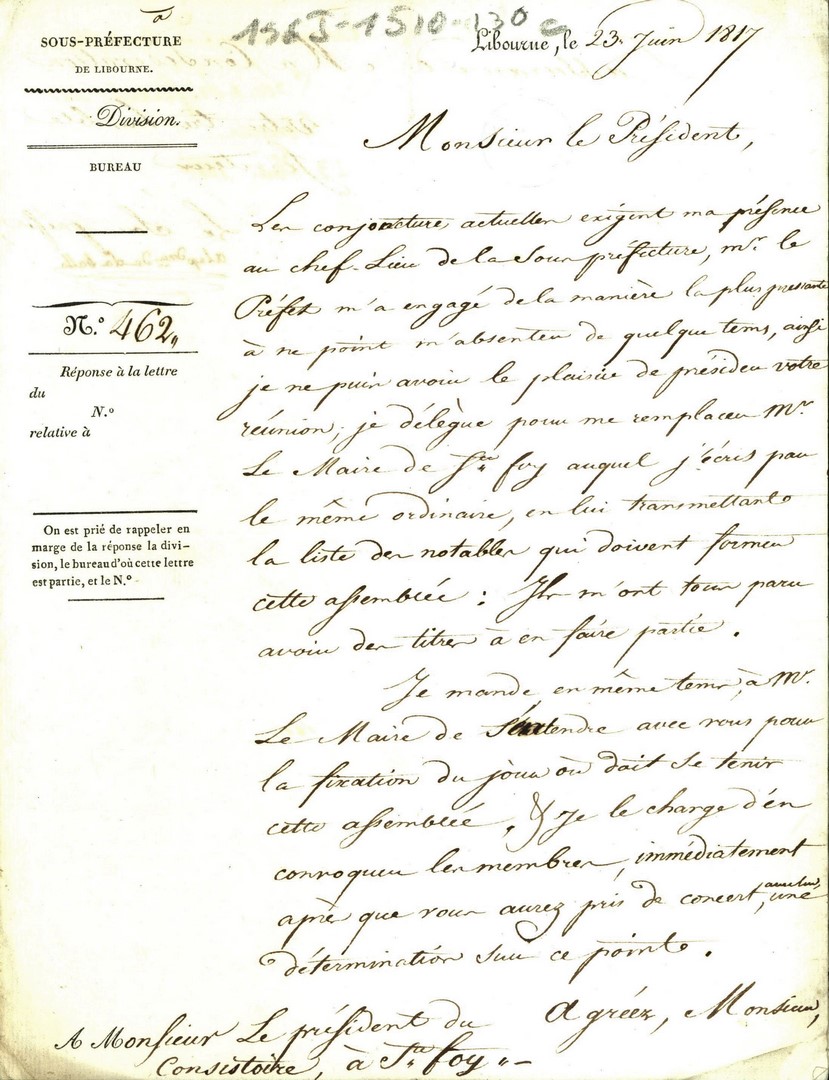 SOUS-PRÉFECTURE
DE LIBOURNE.
Division.
BUREAU
N.° 462,,
Réponse à la lettre
du
N.°
relative à
On est prié de rappeler en
marge de la réponse la divi-
sion, le bureau d'où cette lettre
est partie, et le N.°
Libourne, le 23 Juin 1817
Monsieur le Président,
Les conjoncture actuelles exigent ma présence
au chef-Lieu de la Sous préfecture, mr. le
Préfet m'a engagé de la manière la plus pressante
à ne point m'absenter de quelque tems, ainsi
je ne puis avoir le plaisir de présider votre
réunion, je délègue pour me remplacer Mr.
Le Maire de Ste foy auquel j'écris par
le même ordinaire, en lui transmettant
la liste des notables qui doivent former
cette assemblée : Ils m'ont tous paru
avoir des titres à en faire partie.
Je mande en même tems, à Mr.
Le Maire de s'entendre avec vous pour
la fixation du jour où doit se tenir
cette assemblée. & Je le charge d'én
convoquer les membres, immédiatement
après que vous aurez pris de concert, avec lui, une
détermination sur ce point.
Agréez, Monsieur,
A Monsieur Le président du
Consistoire, à Ste foy ,,-